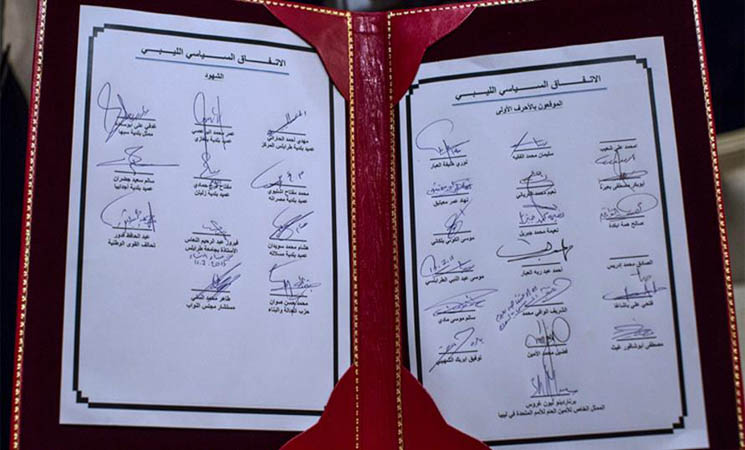 الاتفاق السياسي الليبي
الموقعون بالأحرف الأولى
امحمد علي شعيب
سليمان محمد الفقيه
نوري خليفة العبار
أبوبكر مصطفى بعيرة
نعيم محمد الغرياني
نهاد عمر معيتيق
صالح همة
نعيمة محمد جبريل
موسى الكوني بلكاني
الصادق محمد إدريس
أحمد عبد ربه العبار
موسى عبد النبي الطرابلسي
فتحي علي باشاغا
الشريف الوافي محمد
سالم موسى مادي
مصطفى أبوشاقور غيث
فضيل محمد الأمين
توفيق ابريك الشهيبي
برناردينو ليون غروس
الممثل الخاص للأمين العام للأمم المتحدة في ليبيا
الاتفاق السياسي الليبي
الشهود
مهدي أحمد الحاراتي
عميد بلدية طرابلس المركز
عمر محمد البرعصي
عميد بلدية بنغازي
علي
ممثل بلدية سبها
محمد مفتاح اشتيوي
عميد بلدية مصراته
مفتاح حمادي
عميد بلدية زليتن
سالم سعيد جضران
عميد بلدية أجدابيا
هشام محمد سويدان
عميد بلدية مسلاته
فيروز عبد الرحيم النعاس
الأستاذة بجامعة طرابلس
عبد الحافظ قدور
تحالف القوى الوطنية
محمد حسن صوان
حزب العدالة والبناء
طاهر محمد
مستشار مجلس النواب